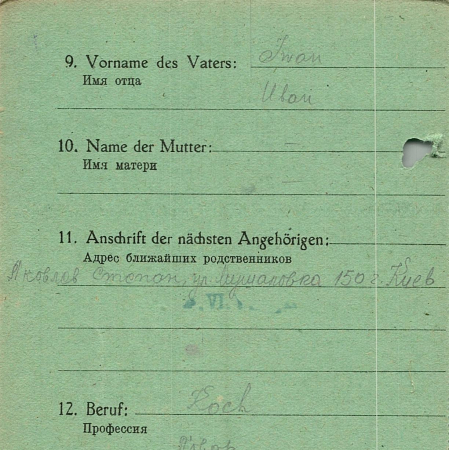 9. Vorname des Vaters: Iwan
Имя отца
Иван
10. Name der Mutter: —
Имя матери
—
11. Anschrift der nächsten Angehörigen:
Адрес ближайших родственников
Яковлов Степан, ул. 150 г. Киев
VI
12. Beruf: Koch
Профессия